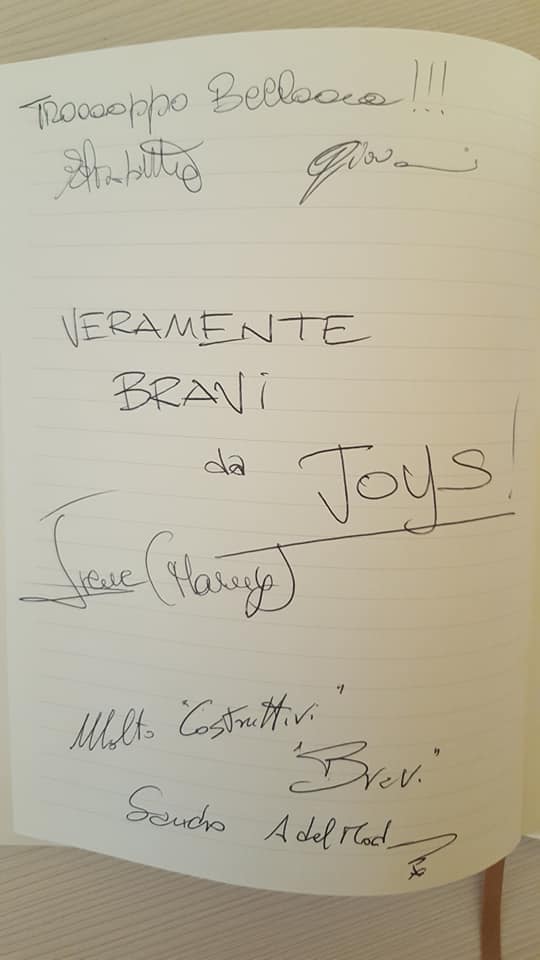 Trooooppo Bellooooo!!!
VERAMENTE
BRAVi
da JOYS!
Irene
Molto "Costruttivi"
"Bravi"
Sandro Adelmo